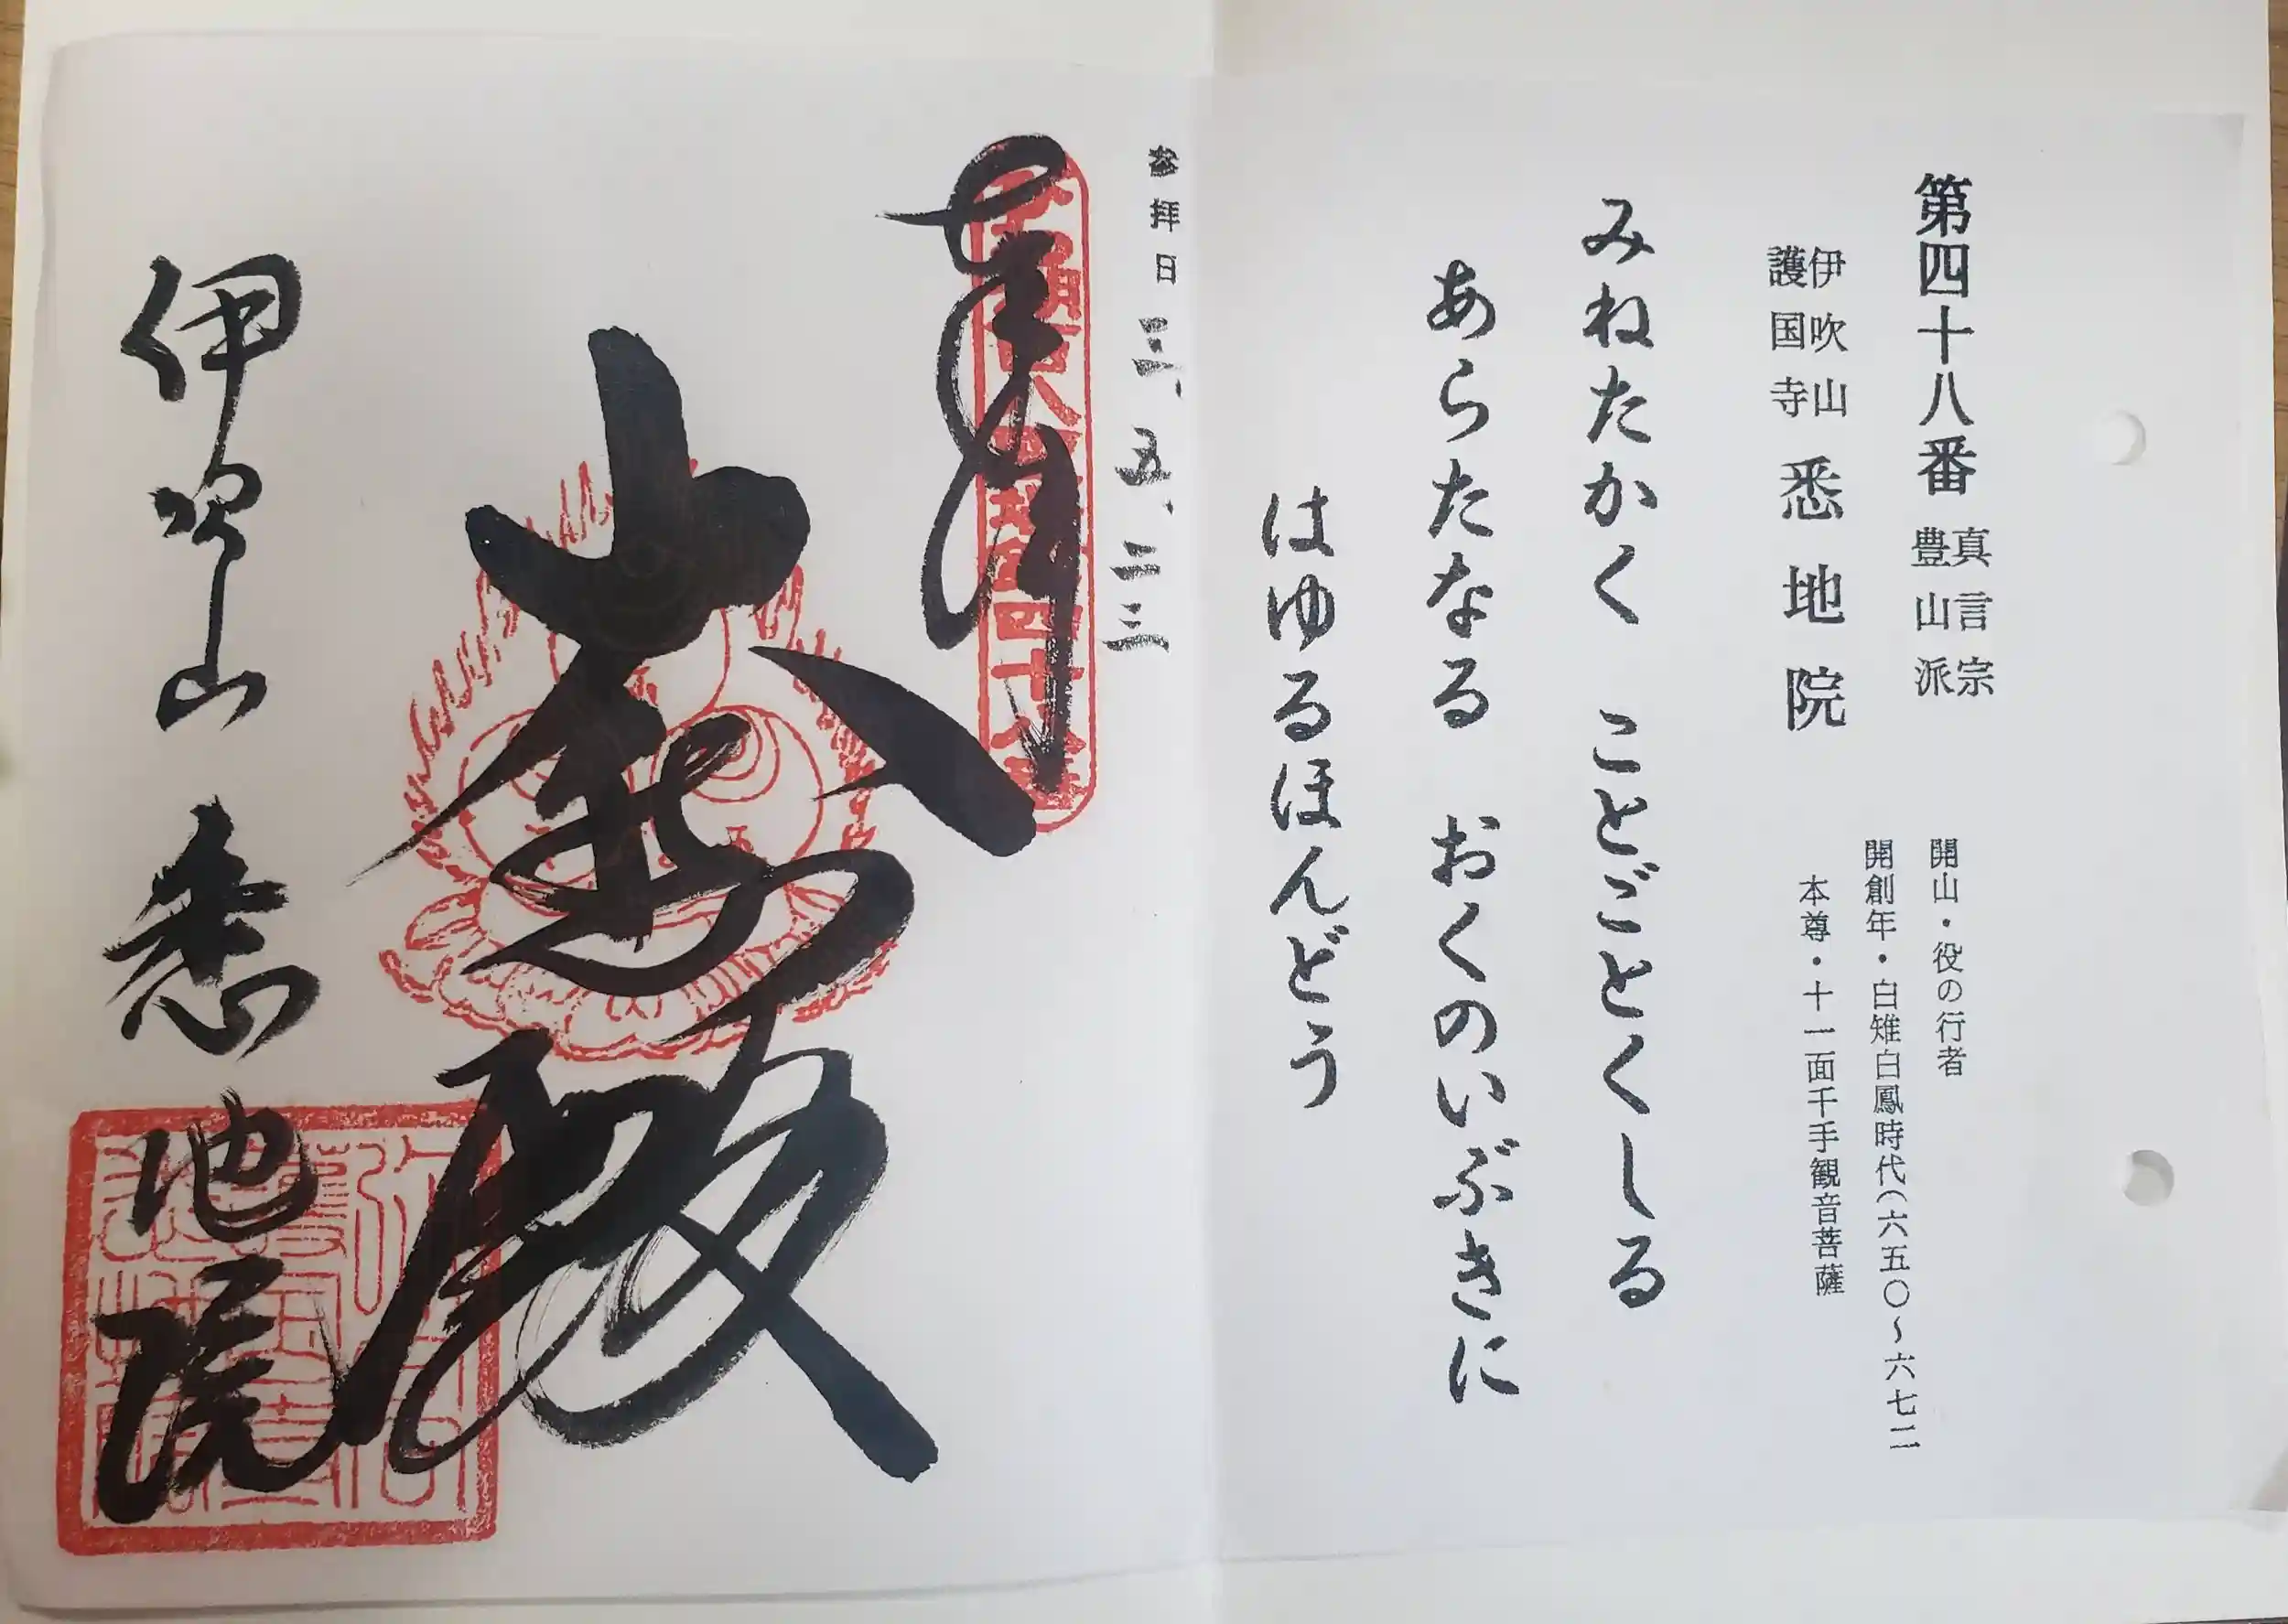 第四十八番 真言宗豊山派
伊吹山護国寺 悉地院
開山・役の行者
開創年・白雉白鳳時代(六五〇~六七二
本尊・十一面千手観音菩薩
みねたかく ことごとくしる
あらたなる おくのいぶきに
はゆるほんどう
参拝日 三、五、二三
奉拝
大悲殿
伊吹山 悉地院